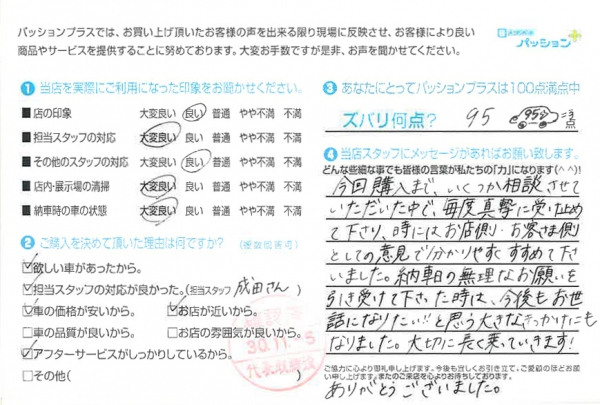 パッションプラスでは、お買い上げ頂いたお客様の声を出来る限り現場に反映させ、お客様により良い
商品やサービスを提供することに努めております。大変お手数ですが是非、お声を聞かせてください。
パッション+
1 当店を実際にご利用になった印象をお聞かせください。
■店の印象 大変良い 良い 普通 やや不満 不満
■担当スタッフの対応 大変良い 良い 普通 やや不満 不満
■その他のスタッフの対応 大変良い 良い 普通 やや不満 不満
■店内・展示場の清掃 大変良い 良い 普通 やや不満 不満
■納車時の車の状態 大変良い 良い 普通 やや不満 不満
2 ご購入を決めて頂いた理由は何ですか? (複数回答可)
☑欲しい車があったから。
☑担当スタッフの対応が良かった。(担当スタッフ 成田さん)
☑車の価格が安いから。 ☑お店が近いから。
□車の品質が良いから。 □お店の雰囲気が良いから。
☑アフターサービスがしっかりしているから。
□その他(
30.11.15
代表取締役
3 あなたにとってパッションプラスは100点満点中
ズバリ何点? 95 95 点
4 当店スタッフにメッセージがあればお願い致します。
どんな些細な事でも皆様の言葉が私たちの「力」になります(^^)!
今回購入まで、いくつか相談させて
いただいた中で、毎度真摯に受け止め
て下さり、時にはお店側・お客さま側
としての意見で分かりやすくすすめて下さ
いました。納車日の無理なお願いを
引き受けて下さった時は、今後もお世
話になりたい!!と思う大きなきっかけにも
なりました。大切に長く乗っていきます!
ご協力に心より御礼申し上げます。今後も宜しくお引き立て、ご愛顧のほどお願い
申し上げます。またのご来店を心よりお待ちしております。
ありがとうございました。